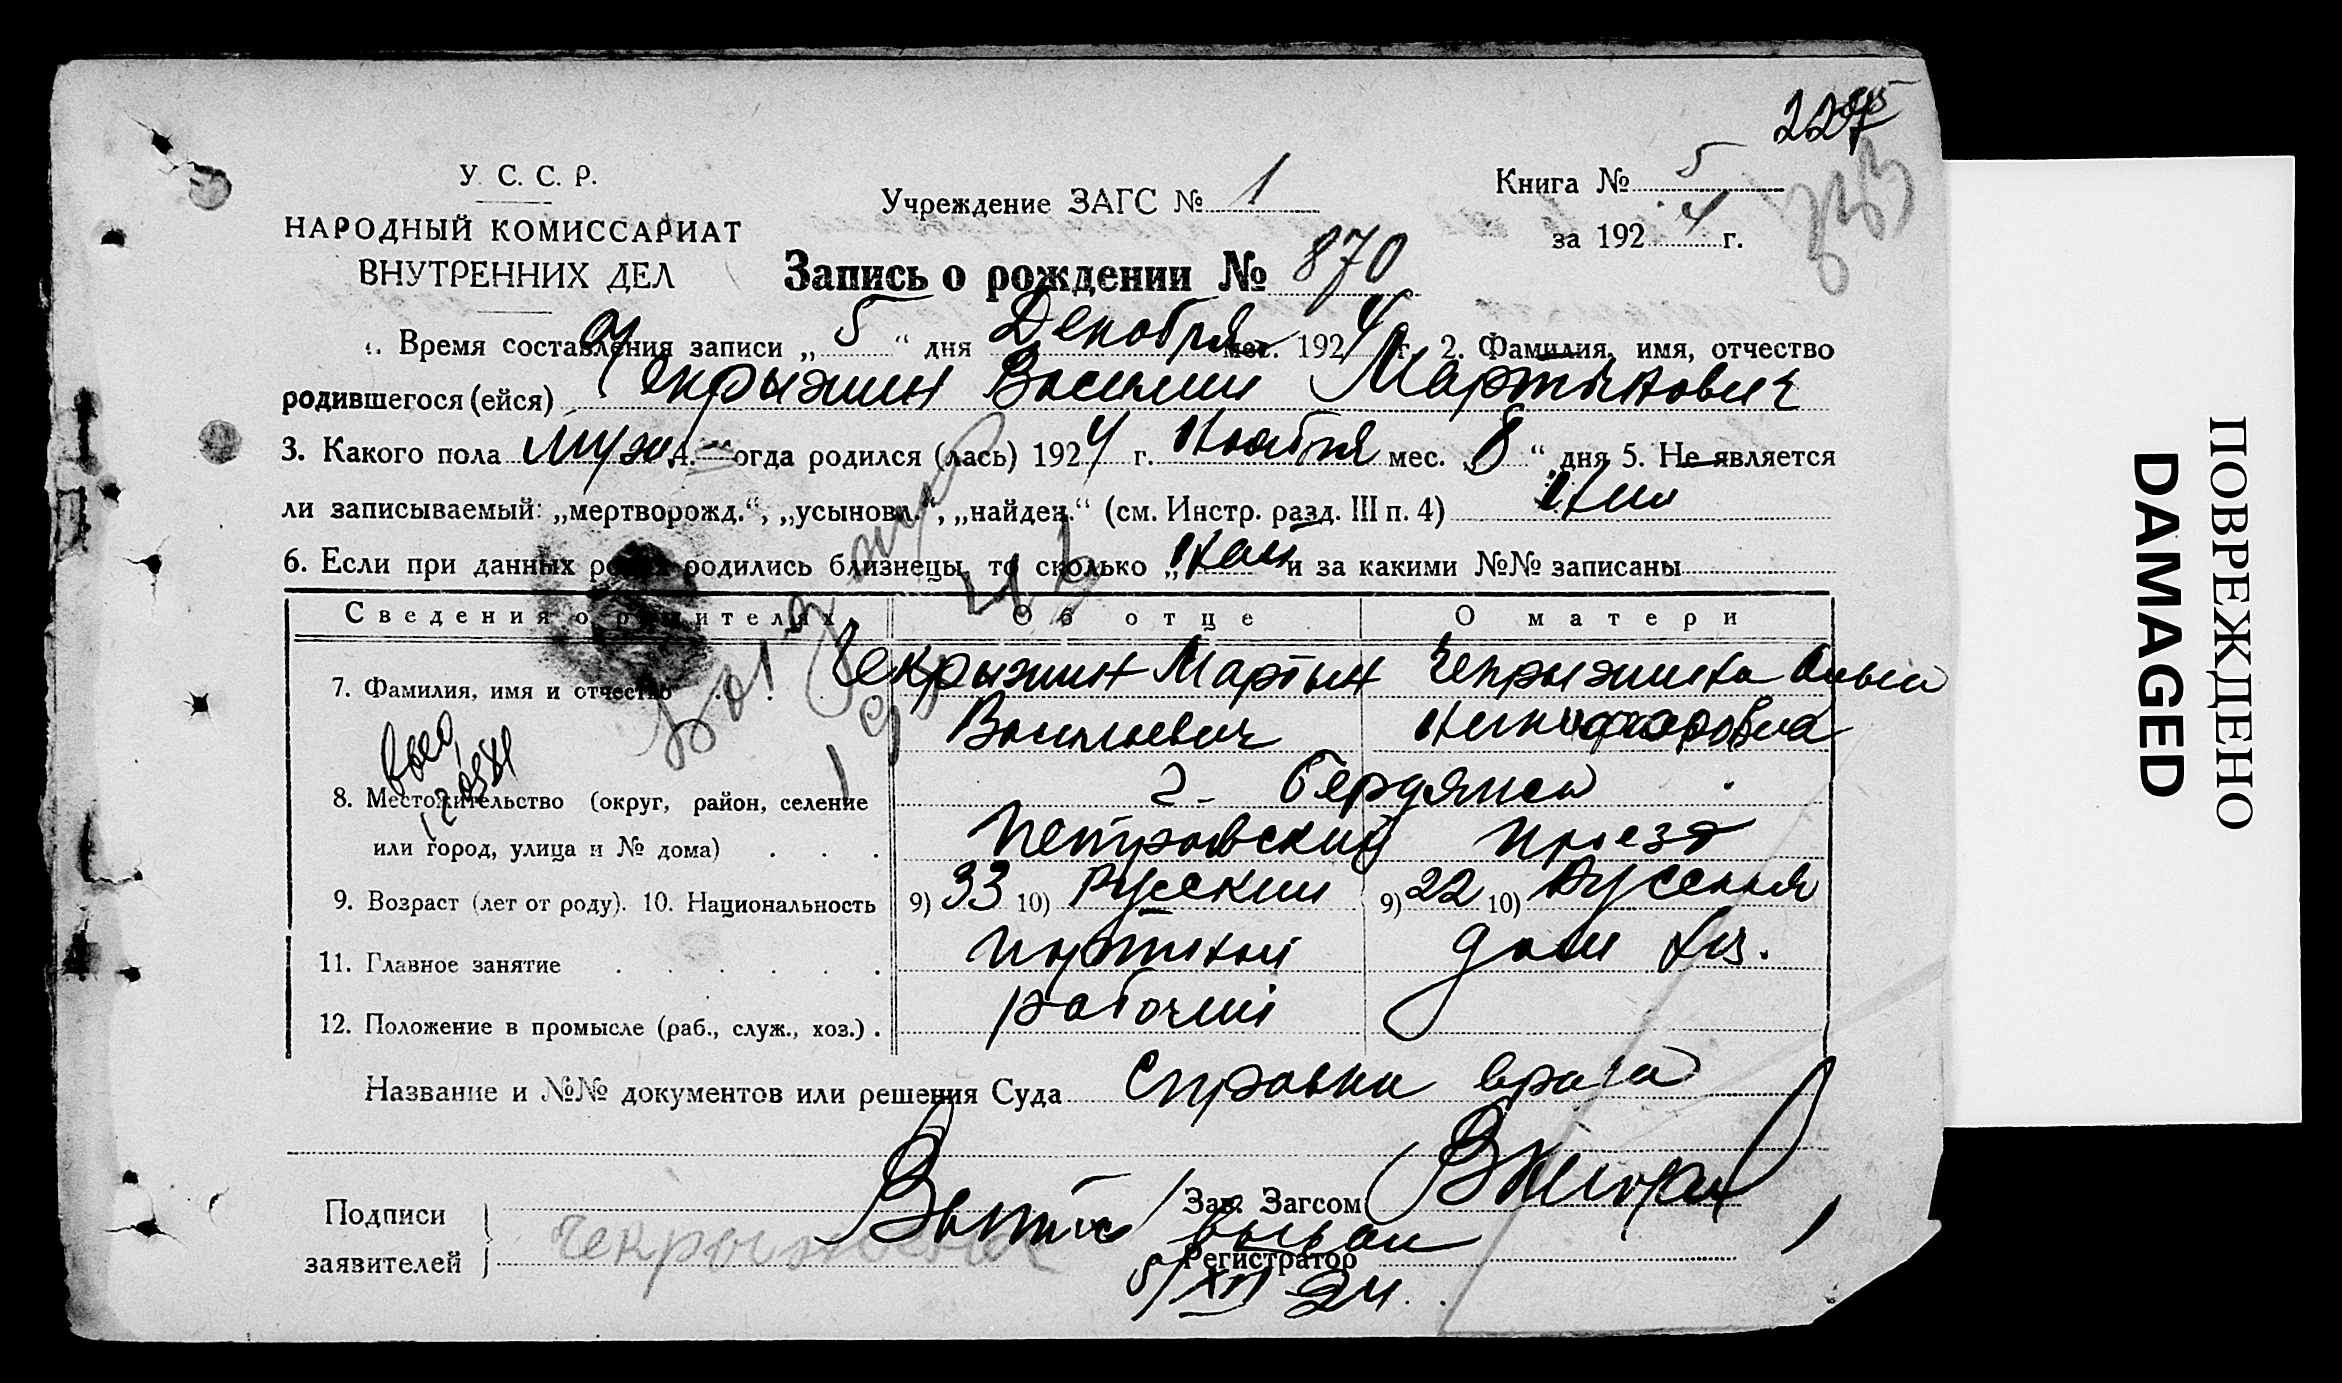 У. С. С. Р.
НАРОДНЫЙ КОМИССАРИАТ
ВНУТРЕННИХ ДЕЛ
Учреждение ЗАГС № 1
Книга № 5
за 1924 г.
Запись о рождении № 870
1. Время составления записи „5“ дня Декабря мес. 1924 г. 2. Фамилия, имя, отчество
родившегося (ейся) Чекрыжин Василий Мартынович
3. Какого пола муж. 4. Когда родился (лась) 1924 г. Ноября мес. „8“ дня 5. Не является
ли записываемый: „мертворожд.“, „усыновл.“, „найден.“ (см. Инстр. разд. III п. 4)
6. Если при данных родах родились близнецы, то сколько „ и за какими №№ записаны
Сведения о родителях Об отце О матери
7. Фамилия, имя и отчество Чекрыжин Мартын Чекрыжина
Васильевич Никифоровна
8. Местожительство (округ, район, селение г. Бердянск
или город, улица и № дома) Петровский проезд
9. Возраст (лет от роду). 10. Национальность 9) 33 10) Русский 9) 22 10) Русская
11. Главное занятие портной дом хоз.
12. Положение в промысле (раб., служ., хоз.) рабочий
Название и №№ документов или решения Суда Справка врача
Подписи
заявителей
Зав. Загсом
Регистратор
5/XII 24.
ПОВРЕЖДЕНО
DAMAGED